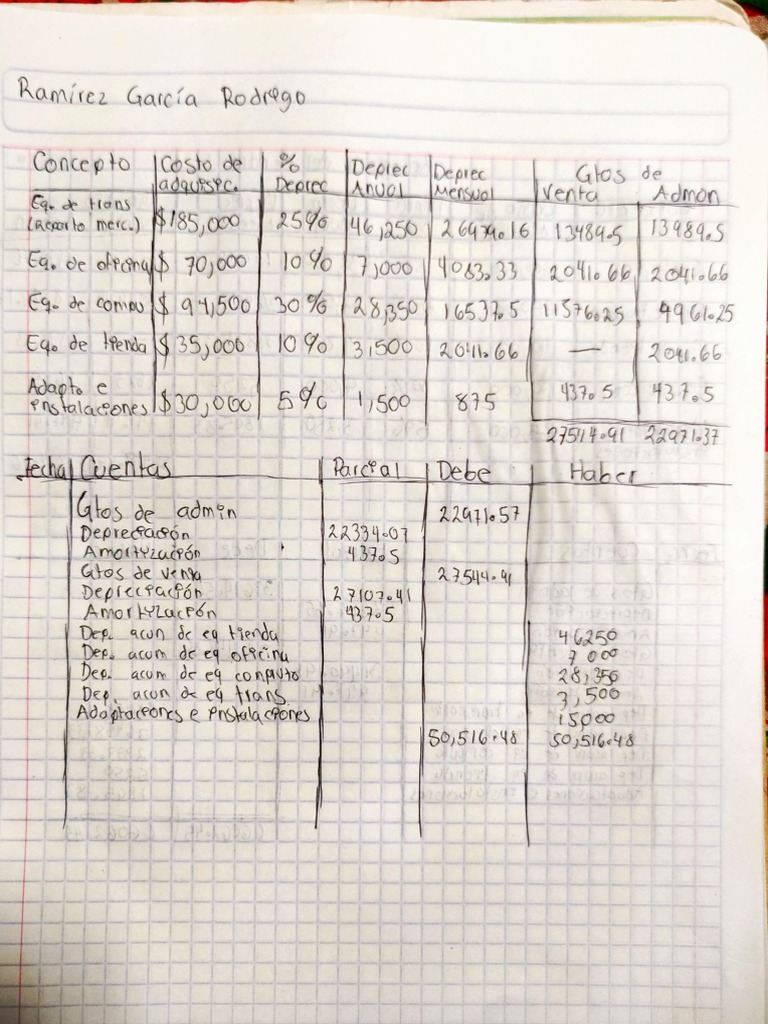 Ramírez García Rodrigo
Concepto | Costo de adquisic. | % Deprec | Deprec Anual | Deprec Mensual | Gtos de Venta | Admon
Eq. de trans (Reparto merc.) | $185,000 | 25% | 46,250 | 26979.16 | 13489.5 | 13989.5
Eq. de oficina | $ 70,000 | 10% | 7,000 | 4083.33 | 2041.66 | 2041.66
Eq. de compu | $ 94,500 | 30% | 28,350 | 16537.5 | 11576.25 | 4961.25
Eq. de tienda | $35,000 | 10% | 3,500 | 2041.66 | — | 2041.66
Adapto e instalaciones | $30,000 | 5% | 1,500 | 875 | 437.5 | 437.5
27544.91 22971.37
Fecha | Cuentas | Parcial | Debe | Haber
Gtos de admin 22971.57
Depreciación 22334.07
Amortización 437.5
Gtos de venta 27544.91
Depreciación 27107.41
Amortización 437.5
Dep. acun de eq tienda 46250
Dep. acum de eq oficina 7000
Dep. acum de eq computo 28,350
Dep. acun de eq trans. 3,500
Adaptaciones e instalaciones 15000
50,516.48 50,516.48